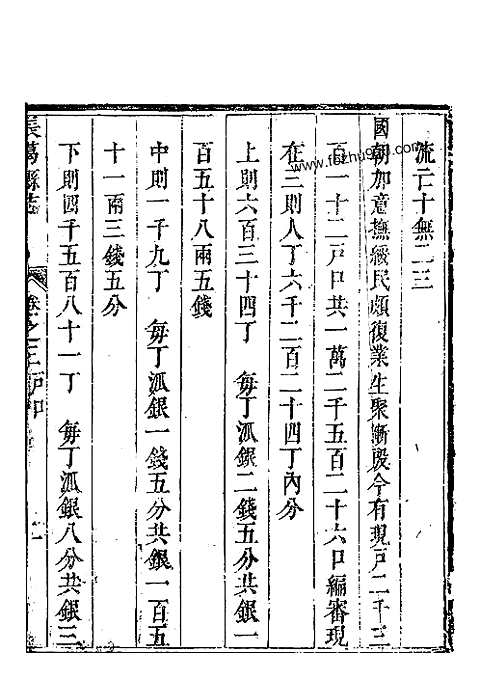 流亡十無二三
國朝加意撫綏民頗復業生聚漸殷今有現戶二千三
百一十二戶口共一萬二千五百二十六口編審現
在三則人丁六千二百二十四丁內分
上則六百三十四丁　每丁派銀二錢五分共銀一
百五十八兩五錢
中則一千九丁　每丁派銀一錢五分共銀一百五
十一兩三錢五分
下則四千五百八十一丁　每丁派銀八分共銀三
長葛縣志　卷之二　戶口
www.fozhu920.com